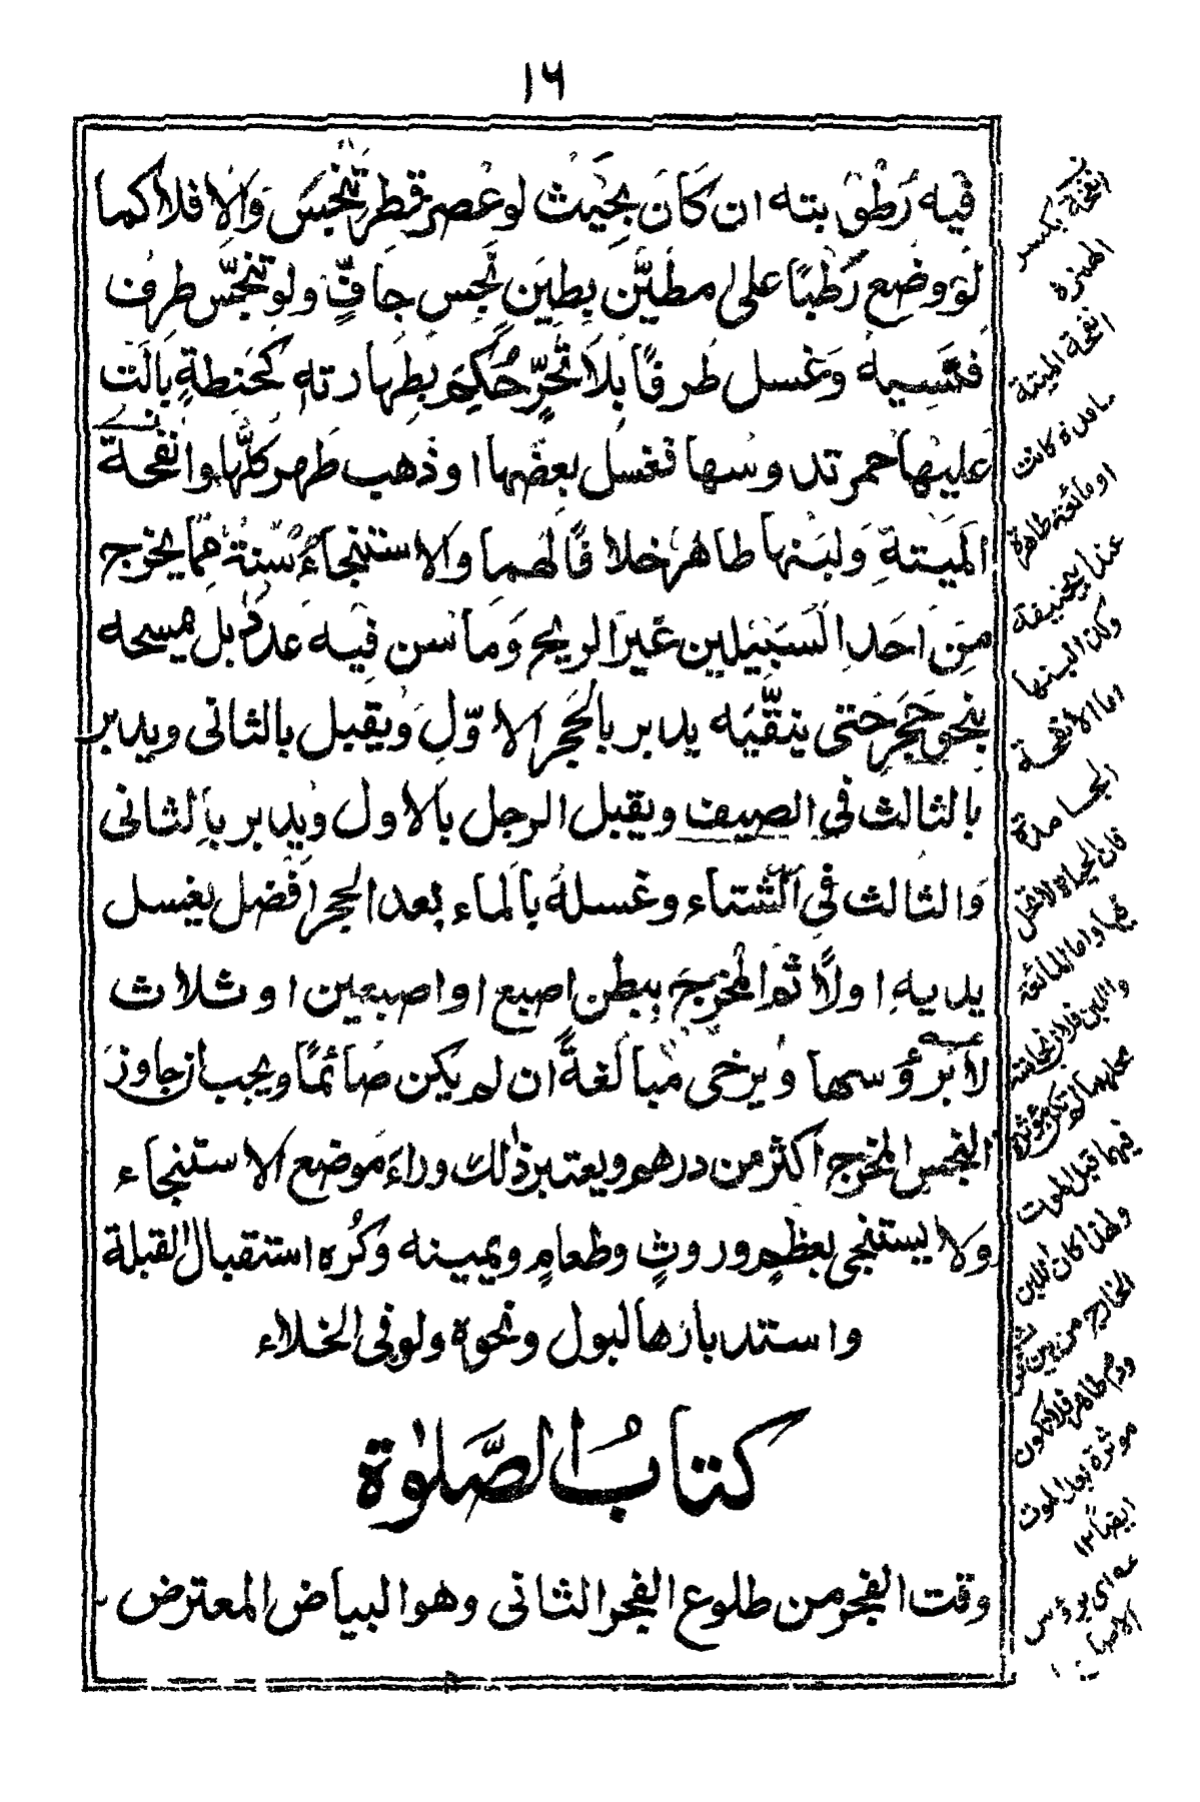 ١٦
فيه رطوبته ان كان بحيث لو عصر قطر تنجس والا فلا كما
لو وضع رطبا على مطين بطين نجس جاف ولو تنجس طرف
فنسيه وغسل طرفا بلا تحر حكم بطهارته كحنطة بالت
عليها حمر تدوسها فغسل بعضها او ذهب طهر كلها وانفحة
الميتة ولبنها طاهر خلافا لهما والاستنجاء سنة مما يخرج
من احد السبيلين غير الريح وما سن فيه عدد بل يمسحه
بنحو حجر حتى ينقيه يدبر بالحجر الاول ويقبل بالثانى ويدبر
بالثالث فى الصيف ويقبل الرجل بالاول ويدبر بالثانى
والثالث فى الشتاء وغسله بالماء بعد الحجر افضل يغسل
يديه اولا ثم المخرج ببطن اصبع او اصبعين او ثلاث
لا برؤسها ويرخى مبالغة ان لم يكن صائما ويجب ان جاوز
النجس المخرج اكثر من درهم ويعتبر ذلك وراء موضع الاستنجاء
ولا يستنجى بعظم وروث وطعام ويمينه وكره استقبال القبلة
واستدبارها لبول ونحوه ولو فى الخلاء
كتاب الصلوة
وقت الفجر من طلوع الفجر الثانى وهو البياض المعترض
انفحة بكسر
الهمزة
انفحة الميتة
جامدة كانت
او مائعة طاهرة
عند ابيحنيفة
وكذا لبنها
اما الانفحة
الجامدة
فان الحياة لا تحل
فيها واما المائعة
واللبن فلان نجاسة
محلهما لم تكن مؤثرة
فيهما قبل الموت
ولهذا كان اللبن
الخارج من بين فرث
ودم طاهر فلا تكون
موثرة بعد الموت
ايضا ١٢
عه اى برؤس
الاصابع